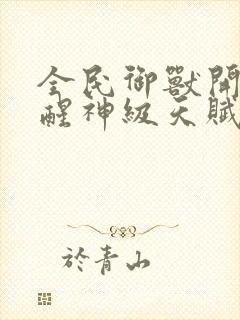 全民御獸開
醒神級天賦
於青山